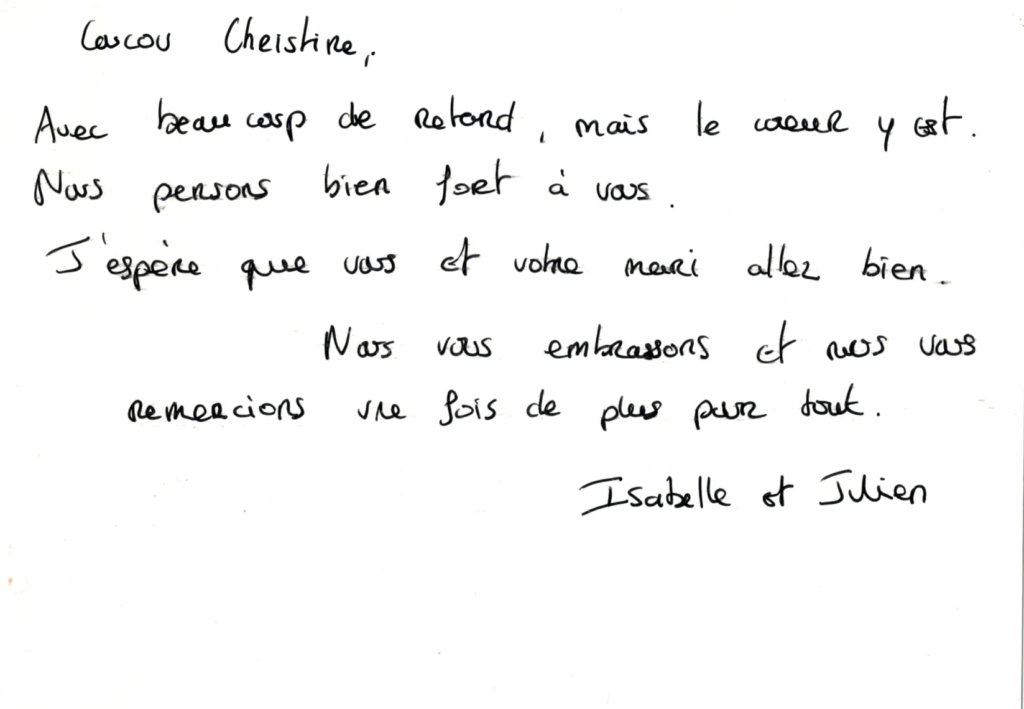 Coucou Christine,
Avec beaucoup de retard, mais le coeur y est.
Nous pensons bien fort à vous.
J'espère que vous et votre mari allez bien.
Nous vous embrassons et nous vous
remercions une fois de plus pour tout.
Isabelle et Julien